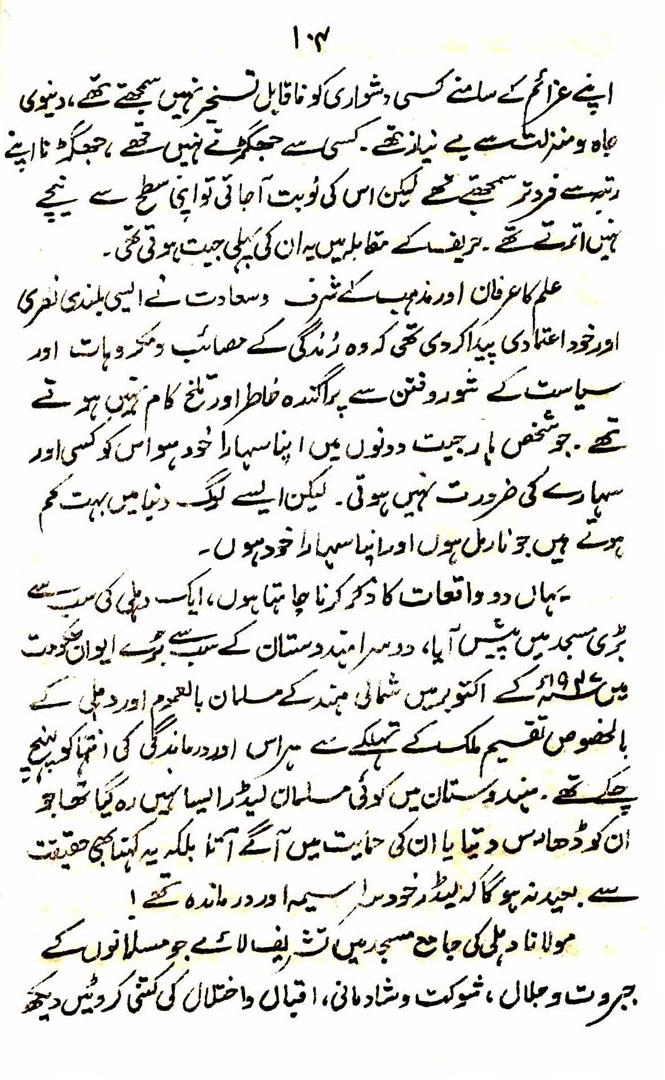 ۱۰۴
اپنے عزائم کے سامنے کسی دشواری کو ناقابل تسخیر نہیں سمجھتے تھے، دنیوی
جاہ و منزلت سے بے نیاز تھے۔ کسی سے جھگڑتے نہیں تھے، جھگڑنا اپنے
رتبہ سے فروتر سمجھتے تھے لیکن اس کی نوبت آجاتی تو اپنی سطح سے نیچے
نہیں اترتے تھے۔ حریف کے مقابلہ میں یہ ان کی پہلی جیت ہوتی تھی۔
علم کا عرفان اور مذہب کے شرف و سعادت نے ایسی بلندی نظری
اور خود اعتمادی پیدا کر دی تھی کہ وہ زندگی کے مصائب و مکروہات اور
سیاست کے شور و فتن سے پراگندہ خاطر اور تلخ کام نہیں ہوتے
تھے۔ جو شخص ہار جیت دونوں میں اپنا سہارا خود ہو اس کو کسی اور
سہارے کی ضرورت نہیں ہوتی۔ لیکن ایسے لوگ دنیا میں بہت کم
ہوتے ہیں جو نارمل ہوں اور اپنا سہارا خود ہوں۔
یہاں دو واقعات کا ذکر کرنا چاہتا ہوں، ایک دہلی کی سب سے
بڑی مسجد میں پیش آیا، دوسرا ہندوستان کے سب سے بڑے ایوان حکومت
میں ۱۹۴۷ء کے اکتوبر میں شمالی ہند کے مسلمان بالعموم اور دہلی کے
بالخصوص تقسیم ملک کے تہلکے سے ہراس اور درماندگی کی انتہا کو پہنچ
چکے تھے۔ ہندوستان میں کوئی مسلمان لیڈر ایسا نہیں رہ گیا تھا جو
ان کو ڈھارس دیتا یا ان کی حمایت میں آگے آتا بلکہ یہ کہنا بھی حقیقت
سے بعید نہ ہوگا کہ لیڈر خود سراسیمہ اور درماندہ تھے!
مولانا دہلی کی جامع مسجد میں تشریف لائے جو مسلمانوں کے
جبروت و جلال، شوکت و شادمانی، اقبال و اختلال کی کتنی کروٹیں دیکھ